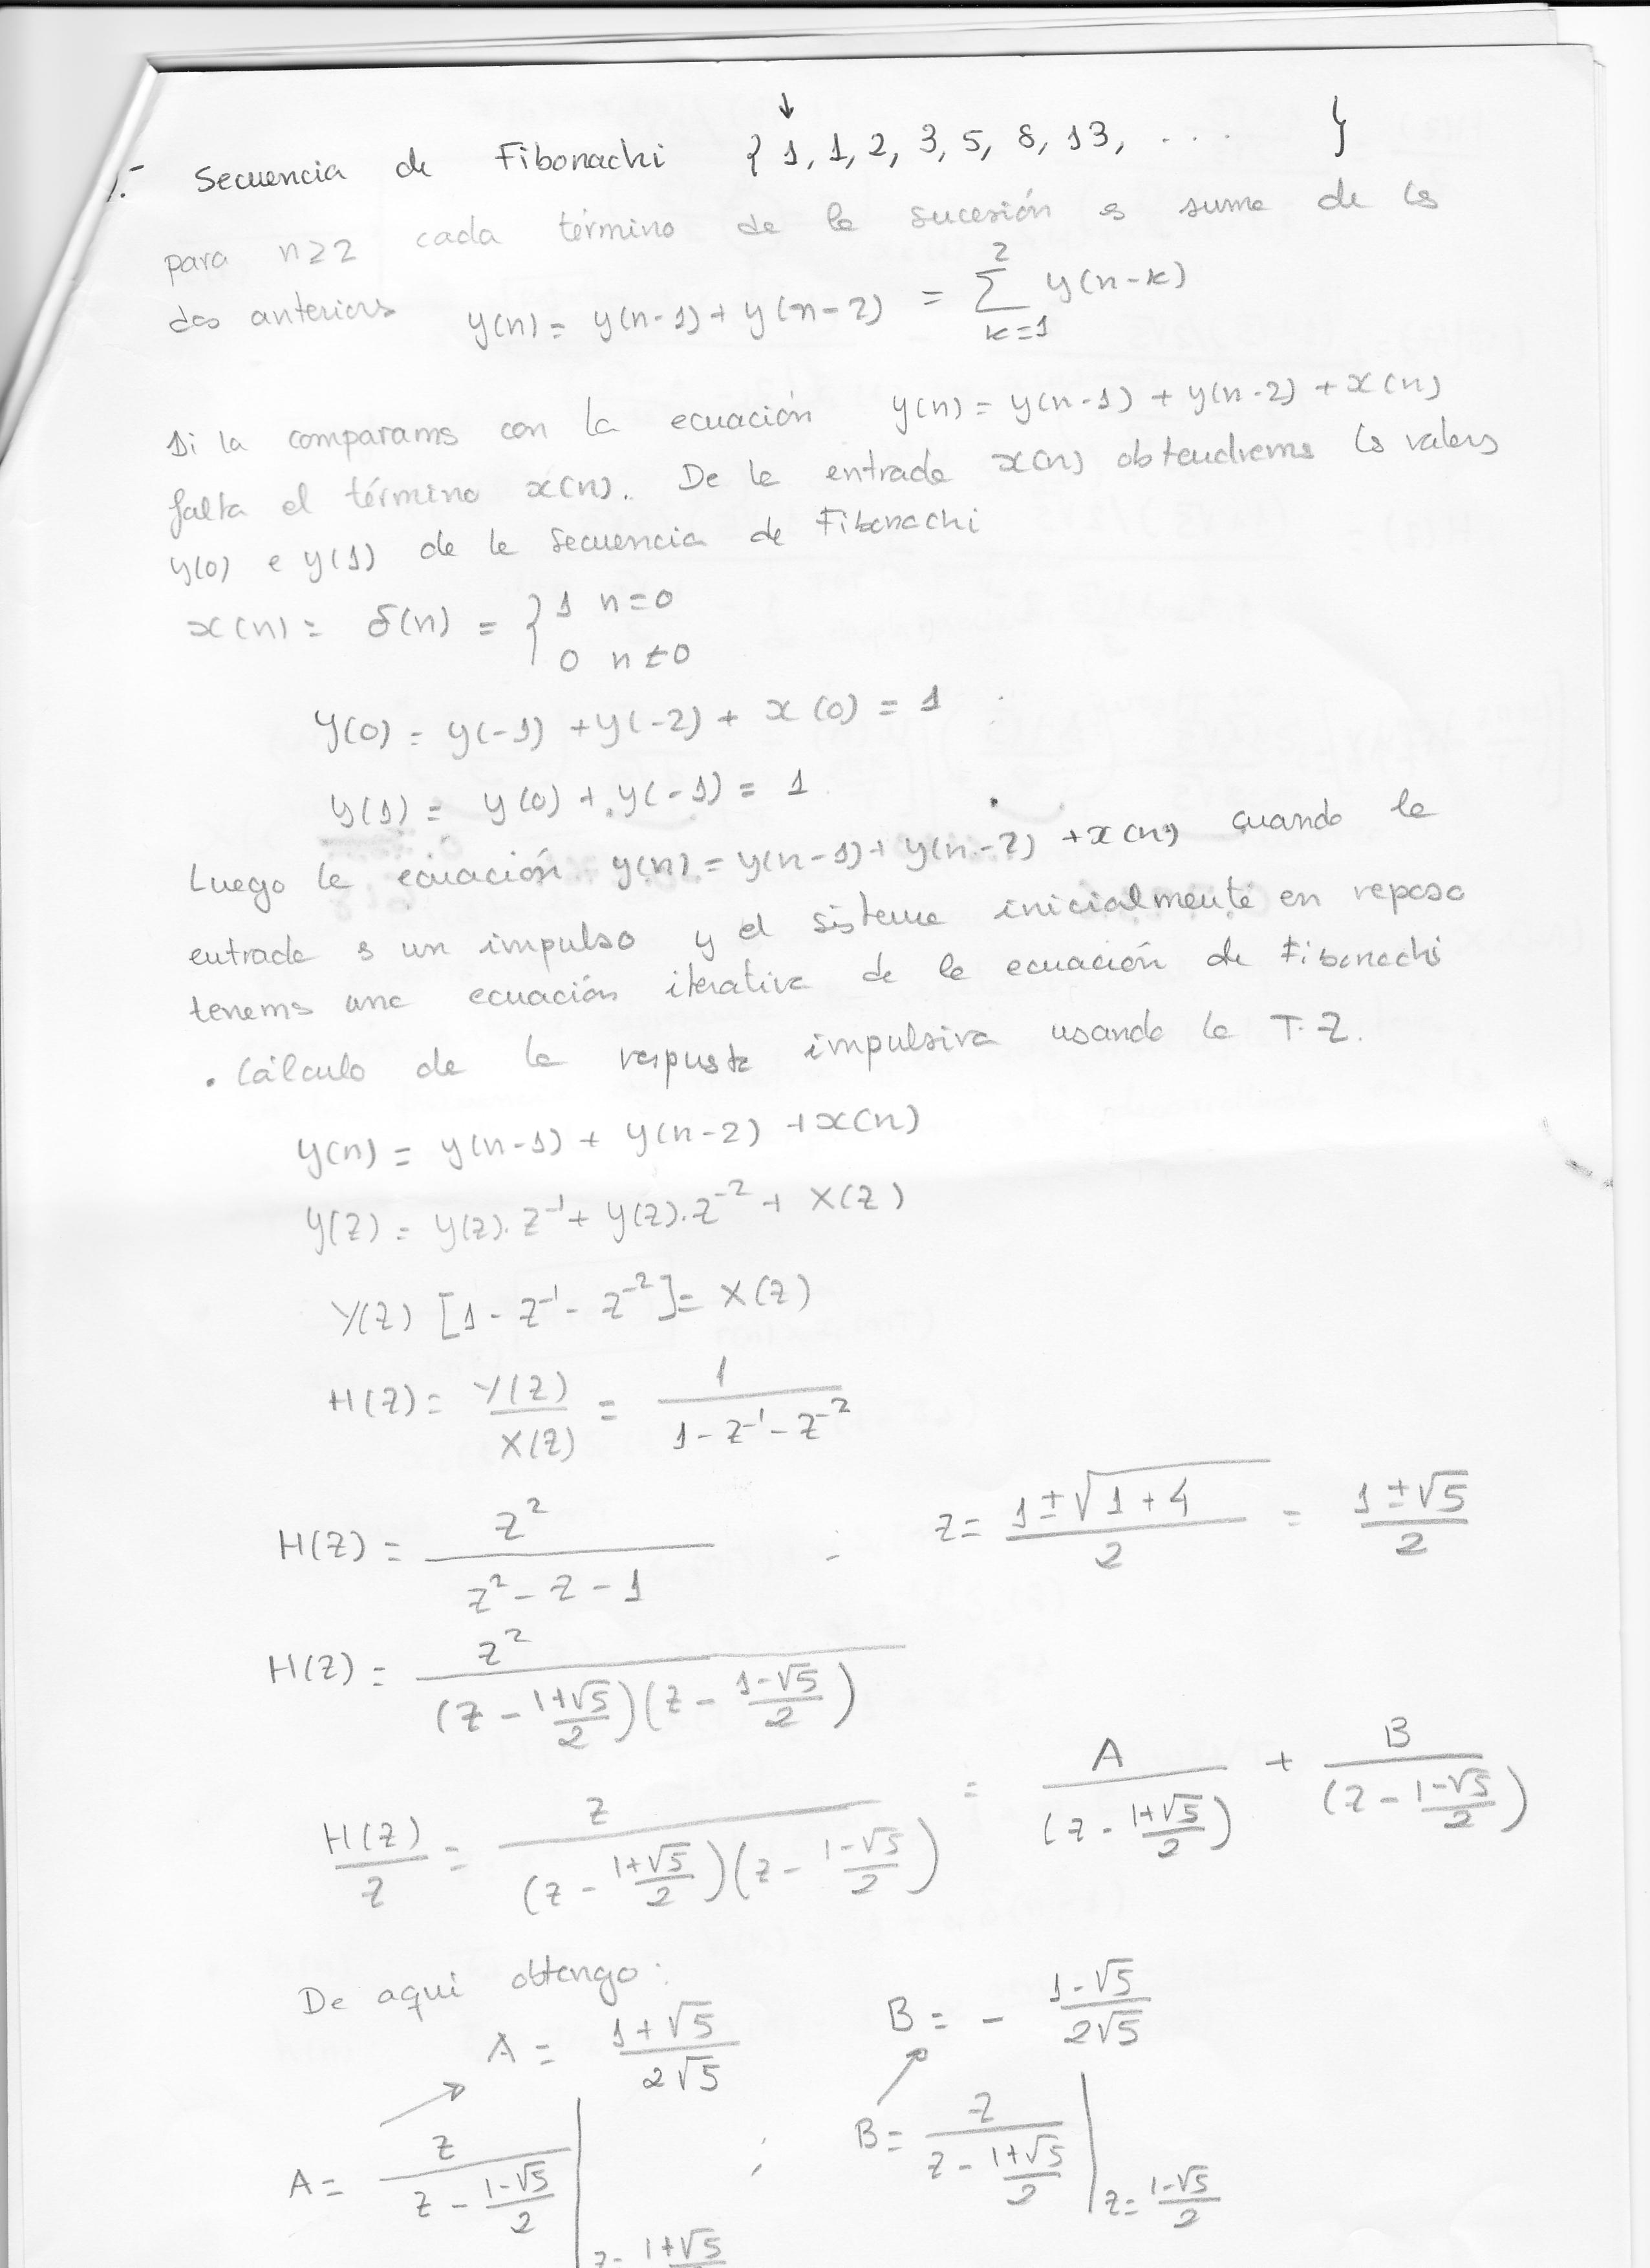 1.- Secuencia de Fibonachi { 1, 1, 2, 3, 5, 8, 13, .... }
para n≥2 cada término de la sucesión es suma de los
dos anteriores y(n) = y(n-1) + y(n-2) = ∑_{k=1}^{2} y(n-k)
Si la comparams con la ecuación y(n) = y(n-1) + y(n-2) + x(n)
falta el término x(n). De la entrada x(n) obtendrems los valors
y(0) e y(1) de la secuencia de Fibonachi
x(n) = δ(n) = { 1 n=0
0 n≠0
y(0) = y(-1) + y(-2) + x(0) = 1
y(1) = y(0) + y(-1) = 1
Luego la ecuación y(n) = y(n-1) + y(n-2) + x(n) cuando la
entrada es un impulso y el sistema inicialmente en reposo
tenems una ecuación iterativa de la ecuación de Fibonachi
. Cálculo de la respuesta impulsiva usando la T.Z.
y(n) = y(n-1) + y(n-2) + x(n)
Y(z) = Y(z).z⁻¹ + Y(z).z⁻² + X(z)
Y(z) [1 - z⁻¹ - z⁻²] = X(z)
H(z) = Y(z)/X(z) = 1/(1 - z⁻¹ - z⁻²)
H(z) = z²/(z² - z - 1) ; z = (1±√(1+4))/2 = (1±√5)/2
H(z) = z²/((z - (1+√5)/2)(z - (1-√5)/2))
H(z)/z = z/((z - (1+√5)/2)(z - (1-√5)/2)) = A/(z - (1+√5)/2) + B/(z - (1-√5)/2)
De aqui obtengo:
A = (1+√5)/(2√5) B = - (1-√5)/(2√5)
A = z/(z - (1-√5)/2) | z = (1+√5)/2 ; B = z/(z - (1+√5)/2) | z = (1-√5)/2